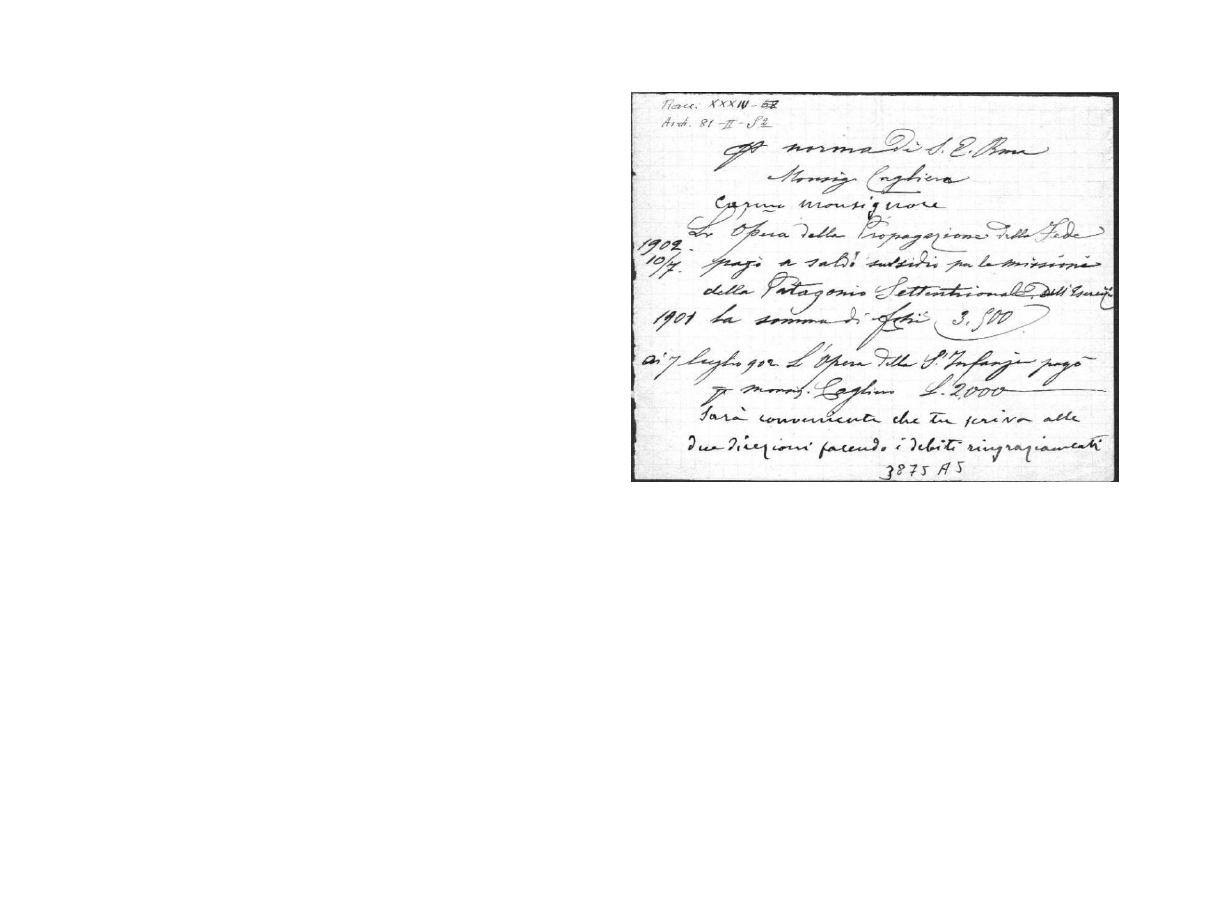 Racc. XXXIV -
Arch. 81 - II - S2
norma di S. E. Rma
Monsig Cagliero
Carmo monsignore
L'Opera della Propagazione della Fede
1902
10/7. pagò a saldo sussidio per le missioni
della Patagonia Settentrionale. Dell'Esercizio
1901 la somma di 3.500
ai 7 luglio 902. L'Opera della Sta Infanzia pagò
monsig. Cagliero L. 2000
Sarà conveniente che tu scriva alle
due direzioni facendo i debiti ringraziamenti
3875 A5